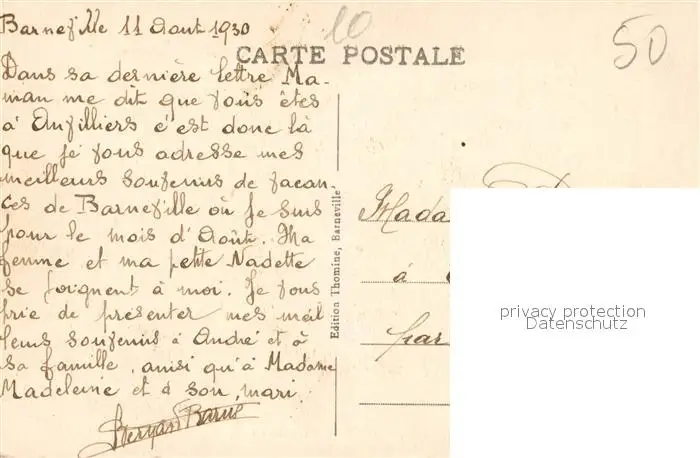 Barneville 11 Août 1930
10
50
CARTE POSTALE
Dans sa dernière lettre Ma-
man me dit que vous êtes
à Anvilliers c'est donc là
que je vous adresse mes
meilleurs souvenirs de vacan-
ces de Barneville où je suis
pour le mois d'Août. Ma
femme et ma petite Nadette
se joignent à moi. Je vous
prie de présenter mes meil
leurs souvenirs à André et à
sa famille, ainsi qu'à Madame
Madeleine et à son mari.
Edition Thomine, Barneville
Mada
à
par
privacy protection
Datenschutz